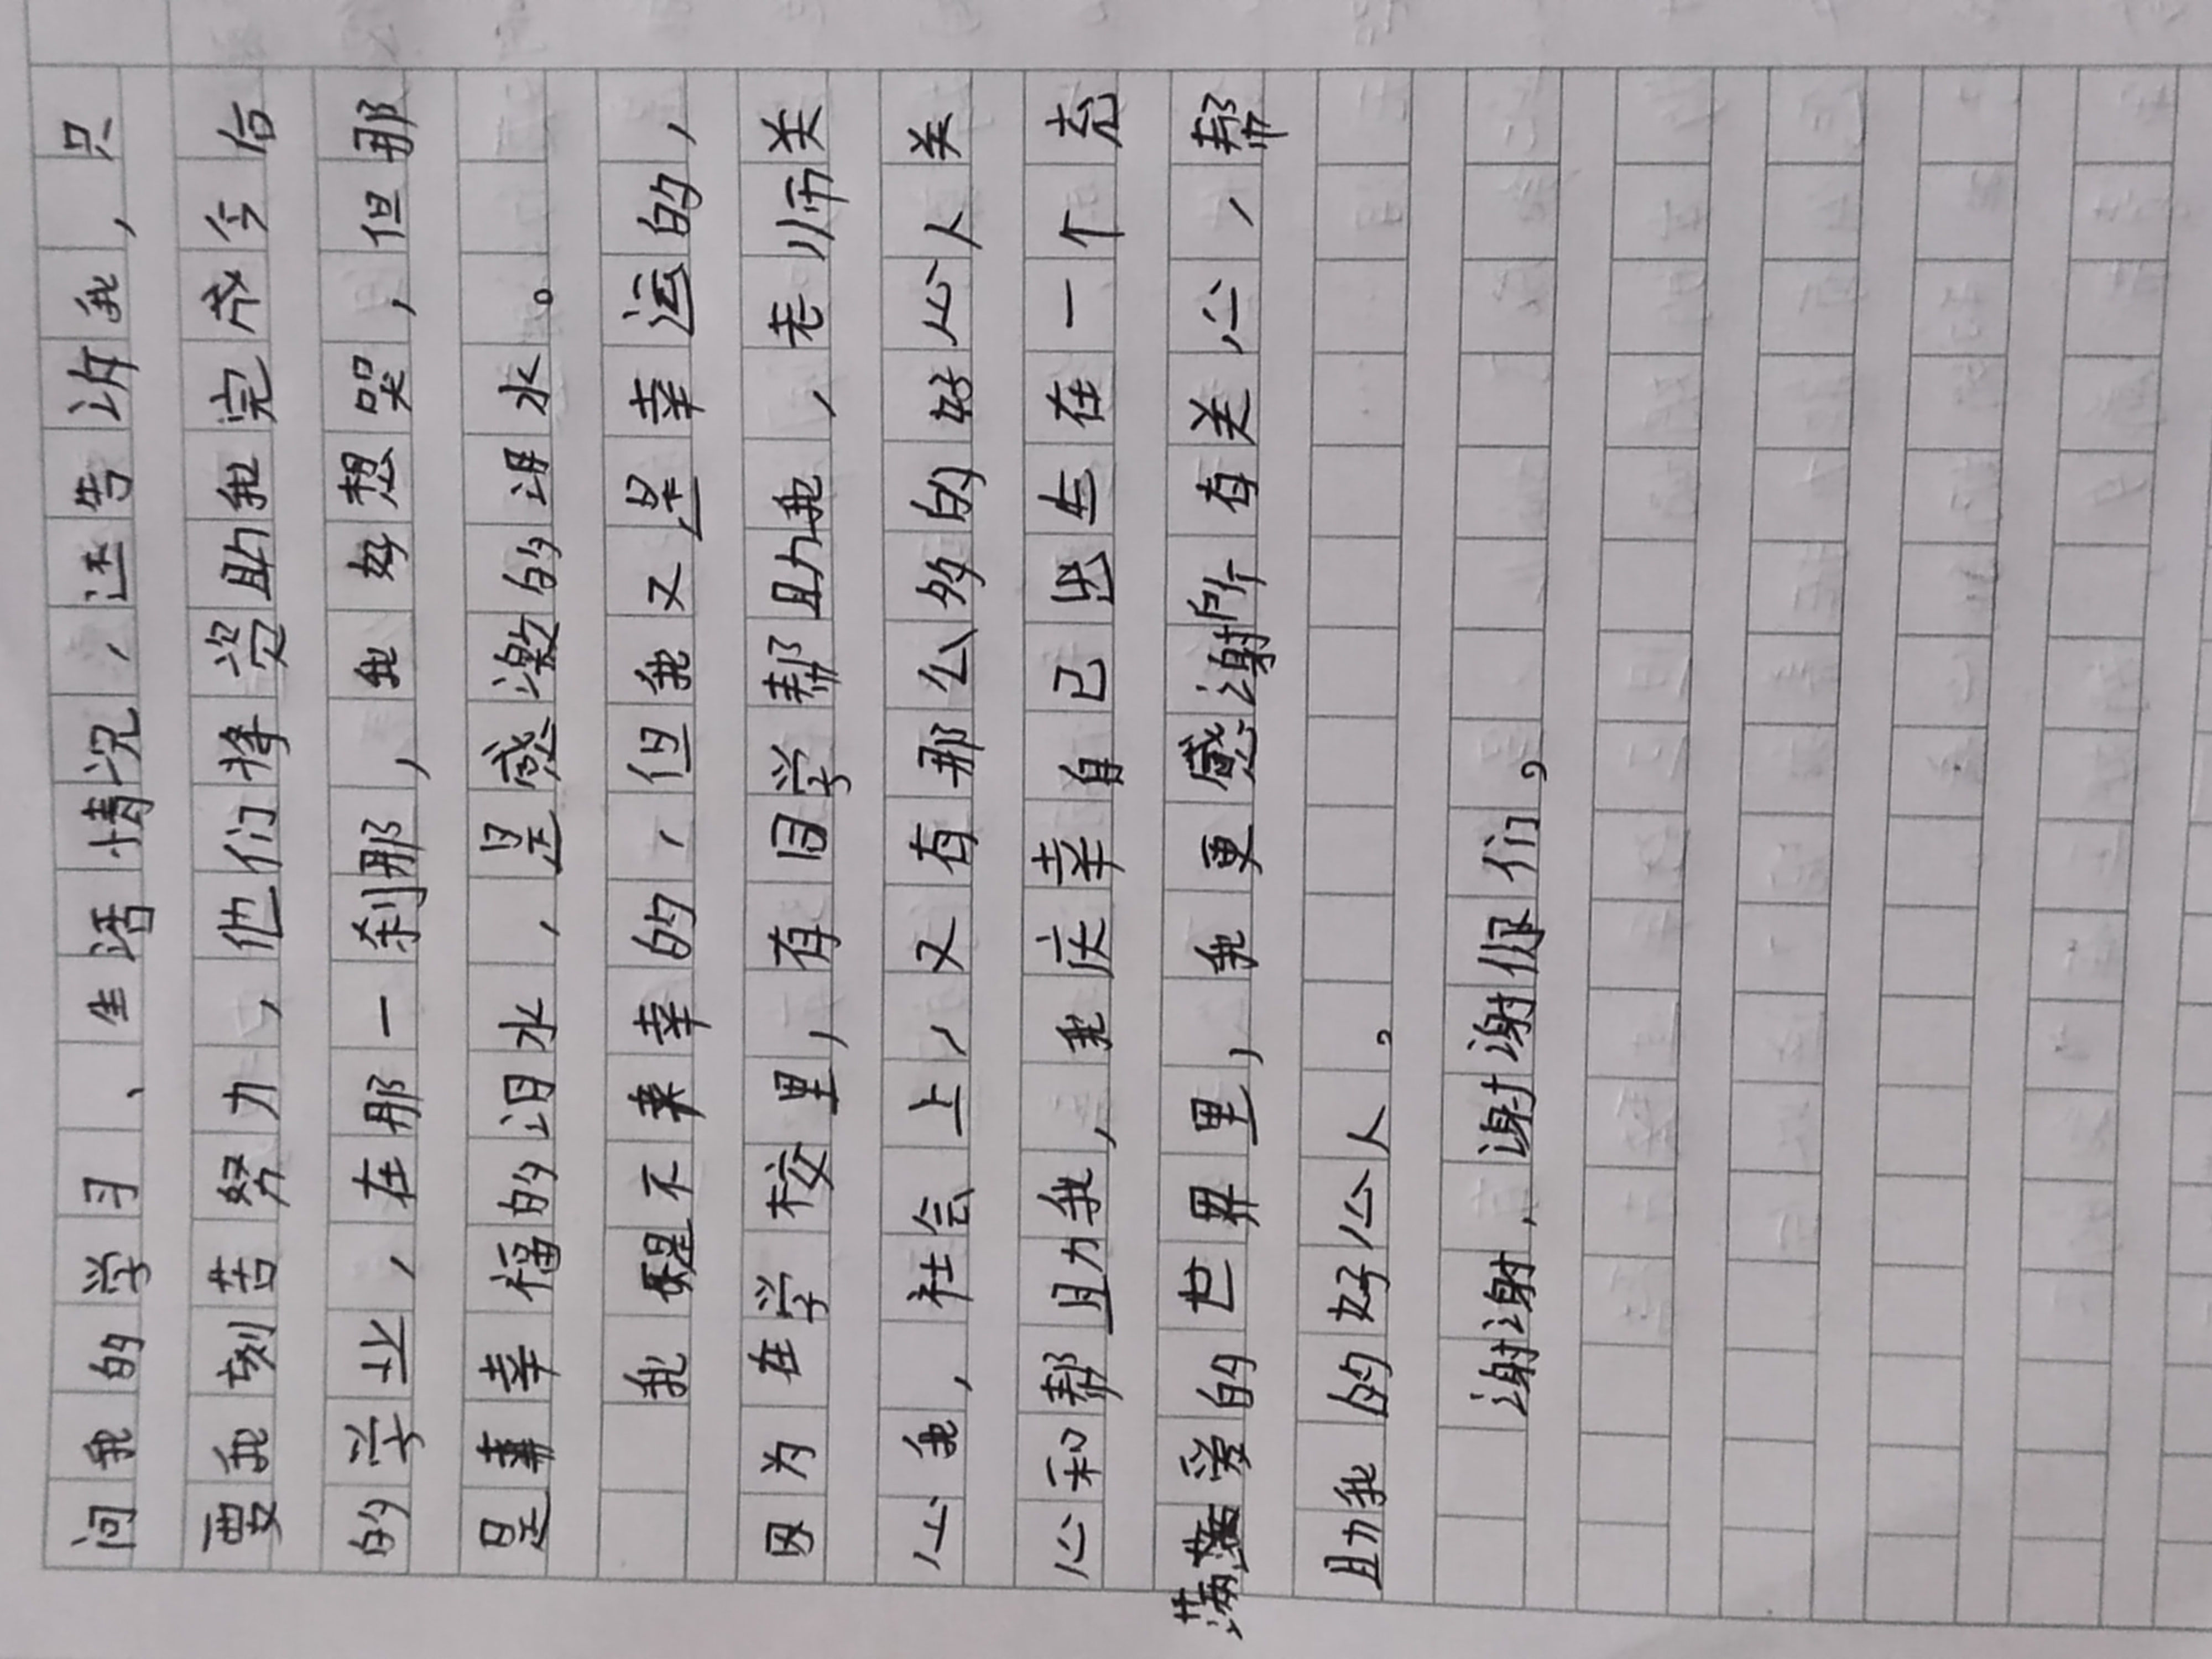 问我的学习、生活情况，还告诉我，只
要我刻苦努力，他们将资助我完成今后
的学业，在那一刹那，我好想哭，但那
是幸福的泪水，是感激的泪水。
我是不幸的，但我又是幸运的，
因为在学校里，有同学帮助我，老师关
心我，社会上，又有那么多的好心人关
心和帮助我，我庆幸自已出生在一个充
满爱的世界里，我更感谢所有关心，帮
助我的好心人。
谢谢，谢谢你们。